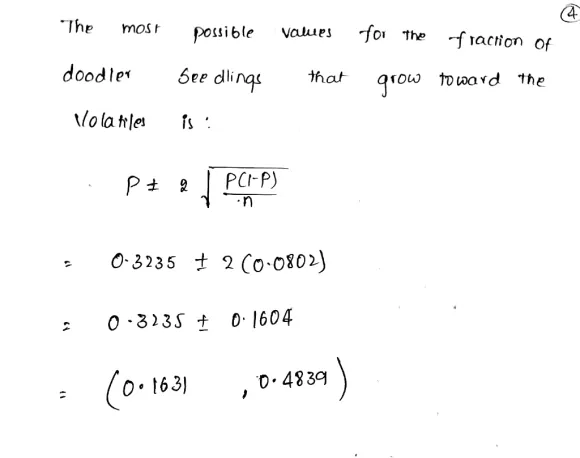 ④
The most possible values for the fraction of
doodler seedlings that grow toward the
Volatiles is :
P ± 2 √(P(1-P)/n)
= 0.3235 ± 2 (0.0802)
= 0.3235 ± 0.1604
= (0.1631 , 0.4839)